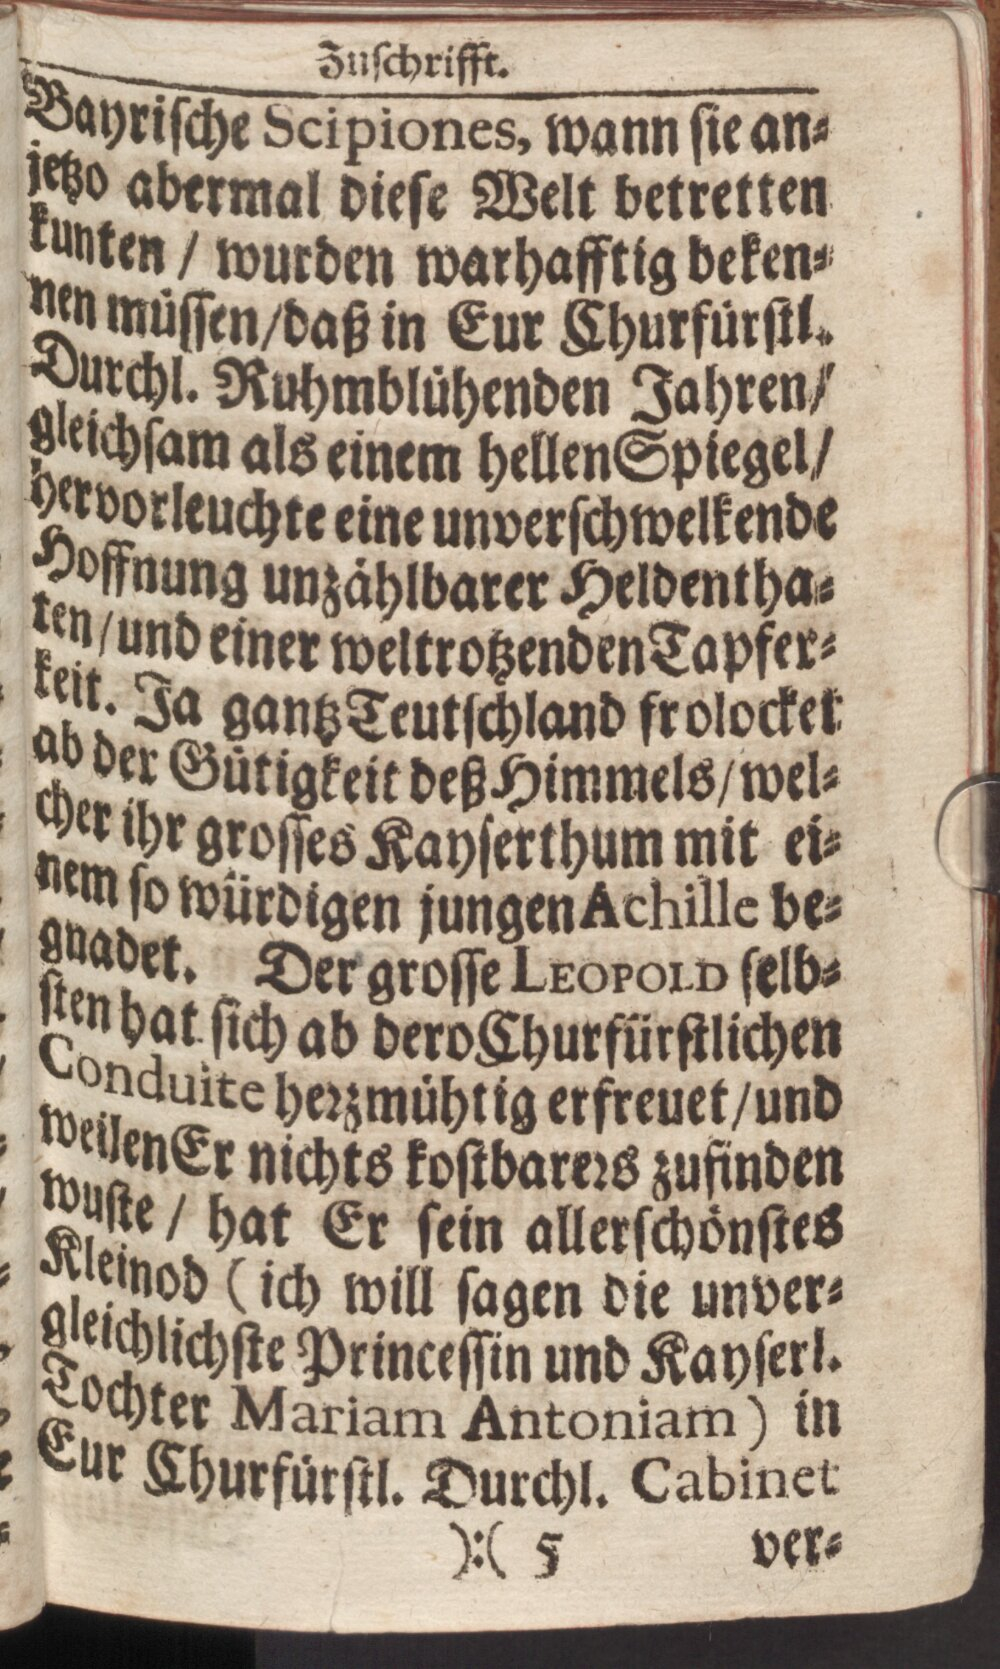 Zuſchrifft.
Bayriſche Scipiones, wann ſie an⸗
jetzo abermal dieſe Welt betretten
kunten / wurden warhafftig beken⸗
nen müſſen/daß in Eur Churfürſtl.
Durchl. Ruhmblühenden Jahren/
gleichſam als einem hellen Spiegel/
hervorleuchte eine unverſchwelkende
Hoffnung unzählbarer Heldentha⸗
ten/und einer weltrotzenden Tapfer⸗
keit. Ja gantz Teutſchland frolocket
ab der Gütigkeit deß Himmels/wel⸗
cher ihr groſſes Kayſerthum mit ei⸗
nem ſo würdigen jungen Achille be⸗
gnadet. Der groſſe LEOPOLD ſelb⸗
ſten hat ſich ab dero Churfürſtlichen
Conduite herzmühtig erfreuet/und
weilen Er nichts koſtbarers zufinden
wuſte / hat Er ſein allerſchönſtes
Kleinod (ich will ſagen die unver⸗
gleichlichſte Princeſſin und Kayſerl.
Tochter Mariam Antoniam) in
Eur Churfürſtl. Durchl. Cabinet
):( 5 ver⸗